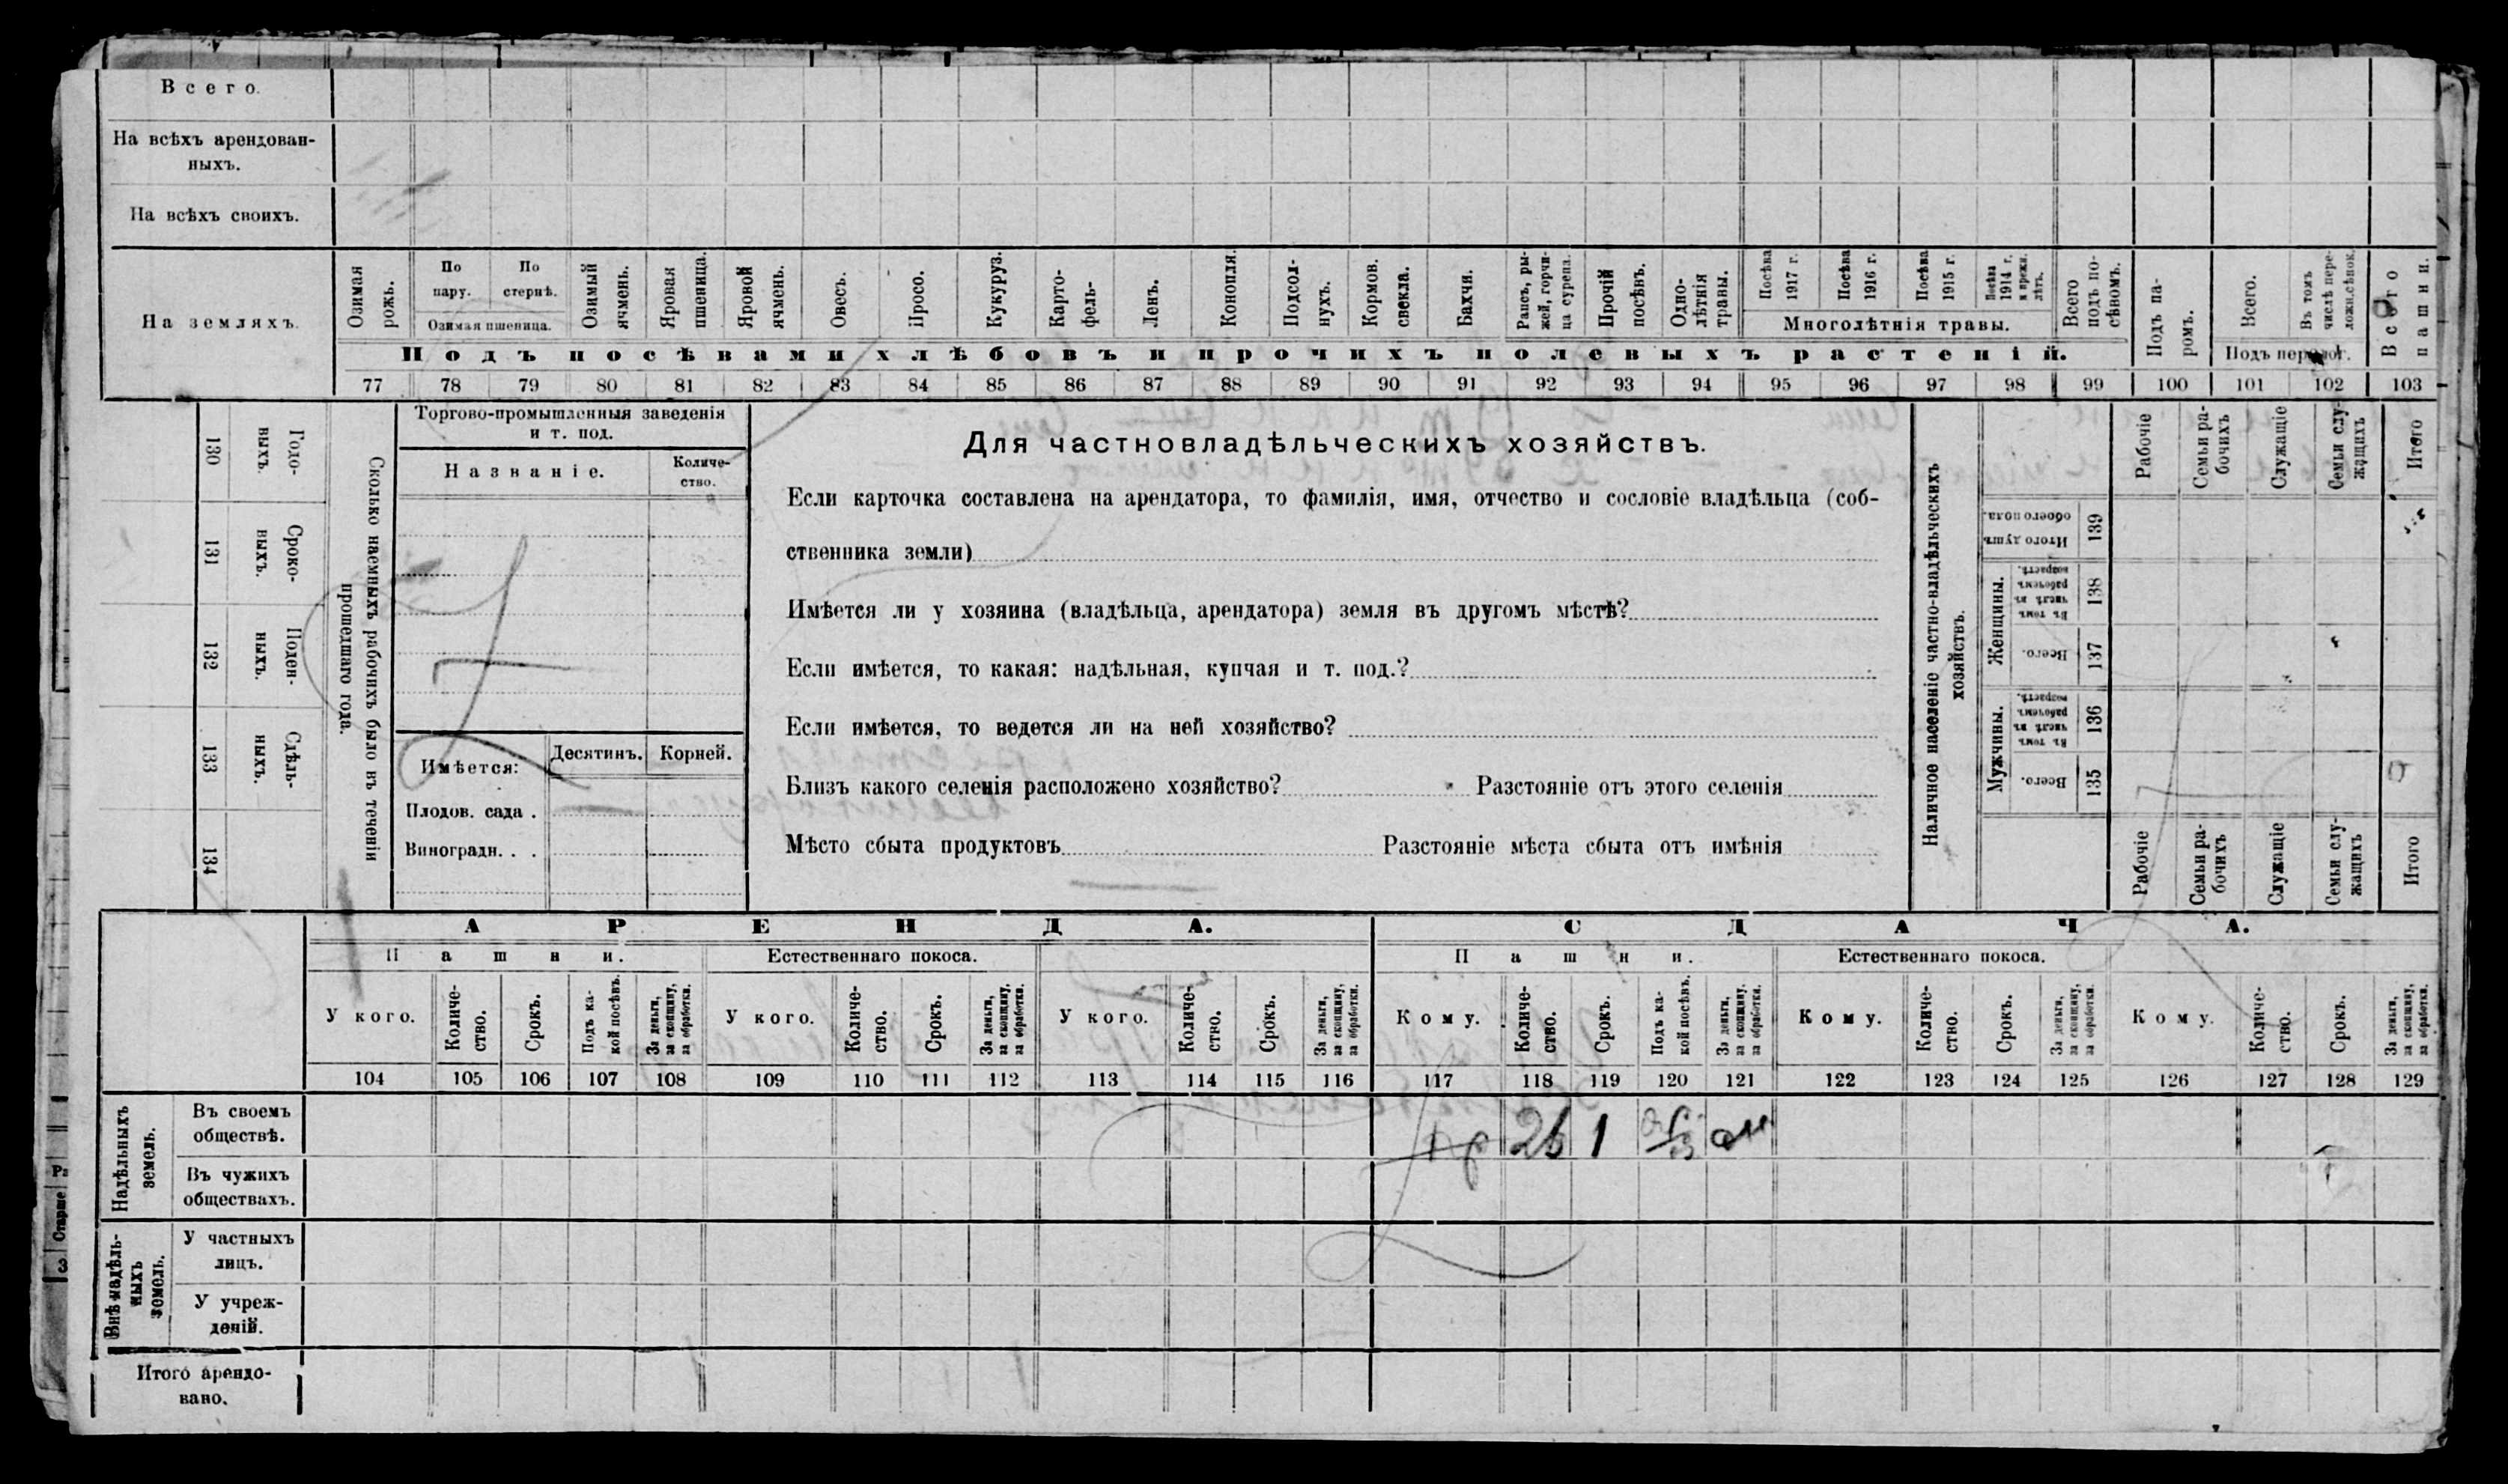 Всего.
На всѣхъ арендован-
ныхъ.
На всѣхъ своихъ.
На земляхъ.
Озимая рожь.
По пару.
По стернѣ.
Озимая пшеница.
Озимый ячмень.
Яровая пшеница.
Яровой ячмень.
Овесъ.
Просо.
Кукуруз.
Карто-
фель-
Ленъ.
Конопля.
Подсол-
нухъ.
Кормов.
свекла.
Бахчи.
Рапсъ, ры-
жей, горчи-
ца сурепа.
Прочій
посѣвъ.
Одно-
лѣтнія
травы.
Посѣва
1917 г.
Посѣва
1916 г.
Посѣва
1915 г.
Посѣва
1914 г.
и прежн.
лѣтъ.
Многолѣтнія травы.
Всего
подъ по-
сѣвомъ.
Подъ па-
ромъ.
Всего.
Въ томъ
числѣ пере-
ложн.сѣнок.
Подъ перелог.
Всего
пашни.
Подъ посѣвами хлѣбовъ и прочихъ полевыхъ растеній.
77 78 79 80 81 82 83 84 85 86 87 88 89 90 91 92 93 94 95 96 97 98 99 100 101 102 103
130
Годо-
выхъ.
131
Сроко-
ныхъ.
132
Поден-
ныхъ.
133
Сдѣль-
ныхъ.
134
Сколько наемныхъ рабочихъ было въ теченіи
прошедшаго года.
Торгово-промышленныя заведенія
и т. под.
Названіе.
Количе-
ство.
Имѣется:
Десятинъ.
Корней.
Плодов. сада .
Виноградн. . .
Для частновладѣльческихъ хозяйствъ.
Если карточка составлена на арендатора, то фамилія, имя, отчество и сословіе владѣльца (соб-
ственника земли)
Имѣется ли у хозяина (владѣльца, арендатора) земля въ другомъ мѣстѣ?
Если имѣется, то какая: надѣльная, купчая и т. под.?
Если имѣется, то ведется ли на ней хозяйство?
Близъ какого селенія расположено хозяйство? Разстояніе отъ этого селенія
Мѣсто сбыта продуктовъ Разстояніе мѣста сбыта отъ имѣнія
Наличное населеніе частно-владѣльческихъ
хозяйствъ.
Рабочіе
Семьи ра-
бочихъ
Служащіе
Семьи слу-
жащихъ
Итого
Итого душъ
обоего пола.
139
Женщины.
Въ томъ
числѣ въ
рабочемъ
возрастѣ.
138
Всего.
137
Мужчины.
Въ томъ
числѣ въ
рабочемъ
возрастѣ.
136
Всего.
135
Рабочіе
Семьи ра-
бочихъ
Служащіе
Семьи слу-
жащихъ
Итого
АРЕНДА.
СДАЧА.
Пашни.
Естественнаго покоса.
Пашни.
Естественнаго покоса.
У кого.
Количе-
ство.
Срокъ.
Подъ ка-
кой посѣвъ.
За деньги,
за скопщину,
за обработки.
У кого.
Количе-
ство.
Срокъ.
За деньги,
за скопщину,
за обработки.
У кого.
Количе-
ство.
Срокъ.
За деньги,
за скопщину,
за обработки.
Кому.
Количе-
ство.
Срокъ.
Подъ ка-
кой посѣвъ.
За деньги,
за скопщину.
за обработки.
Кому.
Количе-
ство.
Срокъ.
За деньги,
за скопщину,
за обработки.
Кому.
Количе-
ство.
Срокъ.
За деньги,
за скопщину,
за обработки.
104 105 106 107 108 109 110 111 112 113 114 115 116 117 118 119 120 121 122 123 124 125 126 127 128 129
Надѣльныхъ
земель.
Въ своемъ
обществѣ.
1
Въ чужихъ
обществахъ.
Внѣ надѣль-
ныхъ
земель.
У частныхъ
лицъ.
У учреж-
деній.
Итого арендо-
вано.
Старше